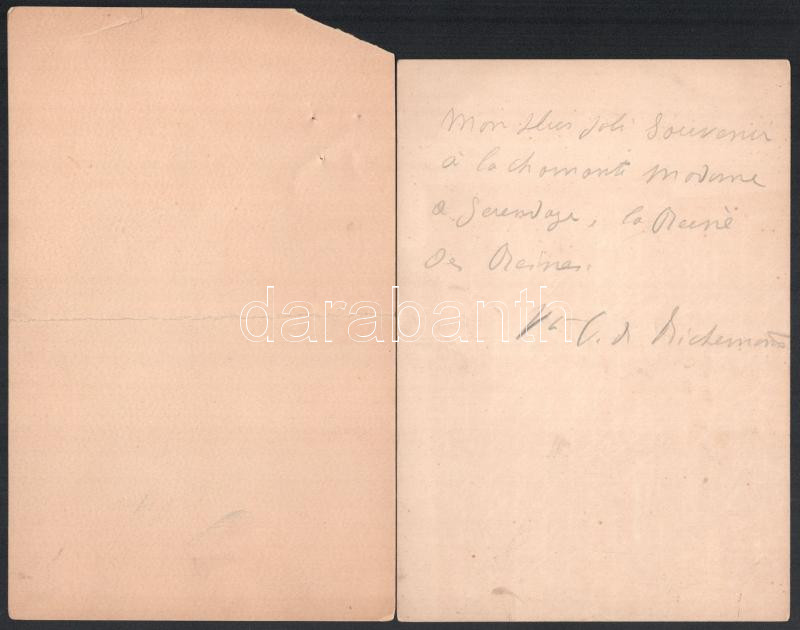 Mon plus joli Souvenir
à la charmante Madame
de la Reine
des Reines.
Vte C. de Richemont
darabanth